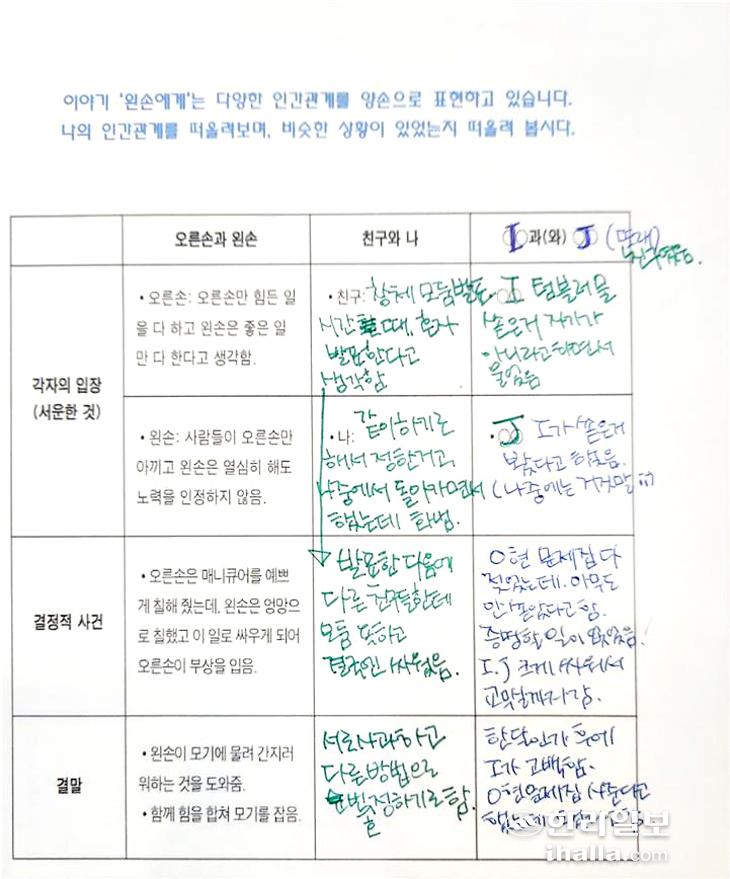 이야기 '왼손에게'는 다양한 인간관계를 양손으로 표현하고 있습니다.
나의 인간관계를 떠올려보며, 비슷한 상황이 있었는지 떠올려 봅시다.
오른손과 왼손
친구와 나
I 과(와) J
각자의 입장
(서운한 것)
• 오른손: 오른손만 힘든 일
을 다 하고 왼손은 좋은 일
만 다 한다고 생각함.
• 친구: 창체 모둠발표
시간 때, 혼자
발표한다고
생각함
I 텀블러 물
쏟은거 자기가
아니라고 하면서
울었음
• 왼손: 사람들이 오른손만
아끼고 왼손은 열심히 해도
노력을 인정하지 않음.
• 나: 같이하기로
해서 정한거고,
나중에서 돌아가면서
했는데 화냄.
• J I가 쏟은거
봤다고 했음.
(나중에는 거짓말
결정적 사건
• 오른손은 매니큐어를 예쁘
게 칠해 줬는데, 왼손은 엉망으
로 칠했고 이 일로 싸우게 되어
오른손이 부상을 입음.
발표한 다음에
다른 친구들한테
모둠 욕하고
결국엔 싸웠음.
O현 문제집 다
젖었는데. 아무도
안 쏟았다고 함.
증명할 일이 없었음.
I.J 크게 싸워서
교무실까지 감.
결말
• 왼손이 모기에 물려 간지러
워하는 것을 도와줌.
• 함께 힘을 합쳐 모기를 잡음.
서로 사과하고
다른 방법으로
정하기로 함.
한달인가 후에
I가 고백함.
O현 문제집 사준다고
했는데
한라일보
ihalla.com